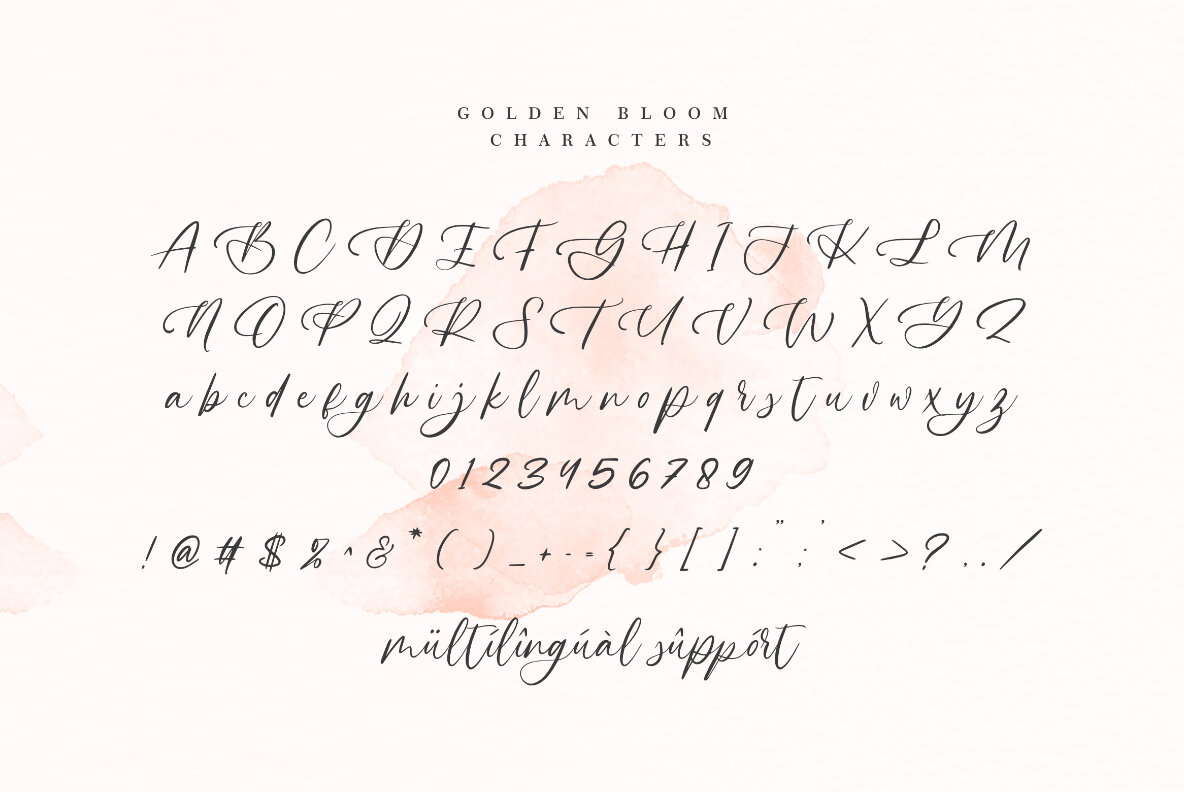 GOLDEN BLOOM
CHARACTERS
A B C D E F G H I J K L M
N O P Q R S T U V W X Y Z
a b c d e f g h i j k l m n o p q r s t u v w x y z
0 1 2 3 4 5 6 7 8 9
! @ # $ % ^ & * ( ) _ + - = { } [ ] : " ; ' < > ? , . /
mültílîngúàl sûppórt